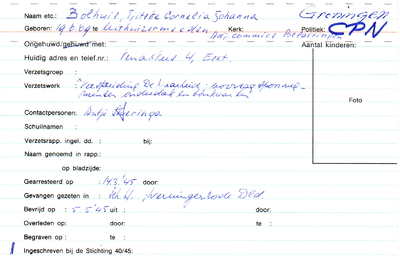 Naam etc.: Bolhuis, Cornelia Johanna Groningen
Geboren: 19.8.89 te Uithuizermeeden Kerk: Politiek: CPN
adj. commies Belastingen
Ongehuwd/gehuwd met: Aantal kinderen:
Huidig adres en telef.nr.: 4, Eext.
Verzetsgroep :
Verzetswerk : Verspreiding De Waarheid,
onderduik en bonkaarten
Foto
Contactpersonen: Antje
Schuilnamen :
Verzetsrapp. ingel. dd. : bij:
Naam genoemd in rapp.:
op bladzijde:
Gearresteerd op : 14.3.'45 door:
Gevangen gezeten in : Sch.H., Dld.
Bevrijd op : 5.5.'45 uit : door:
Overleden op: : te : door:
Begraven op : : te :
Ingeschreven bij de Stichting 40/45: